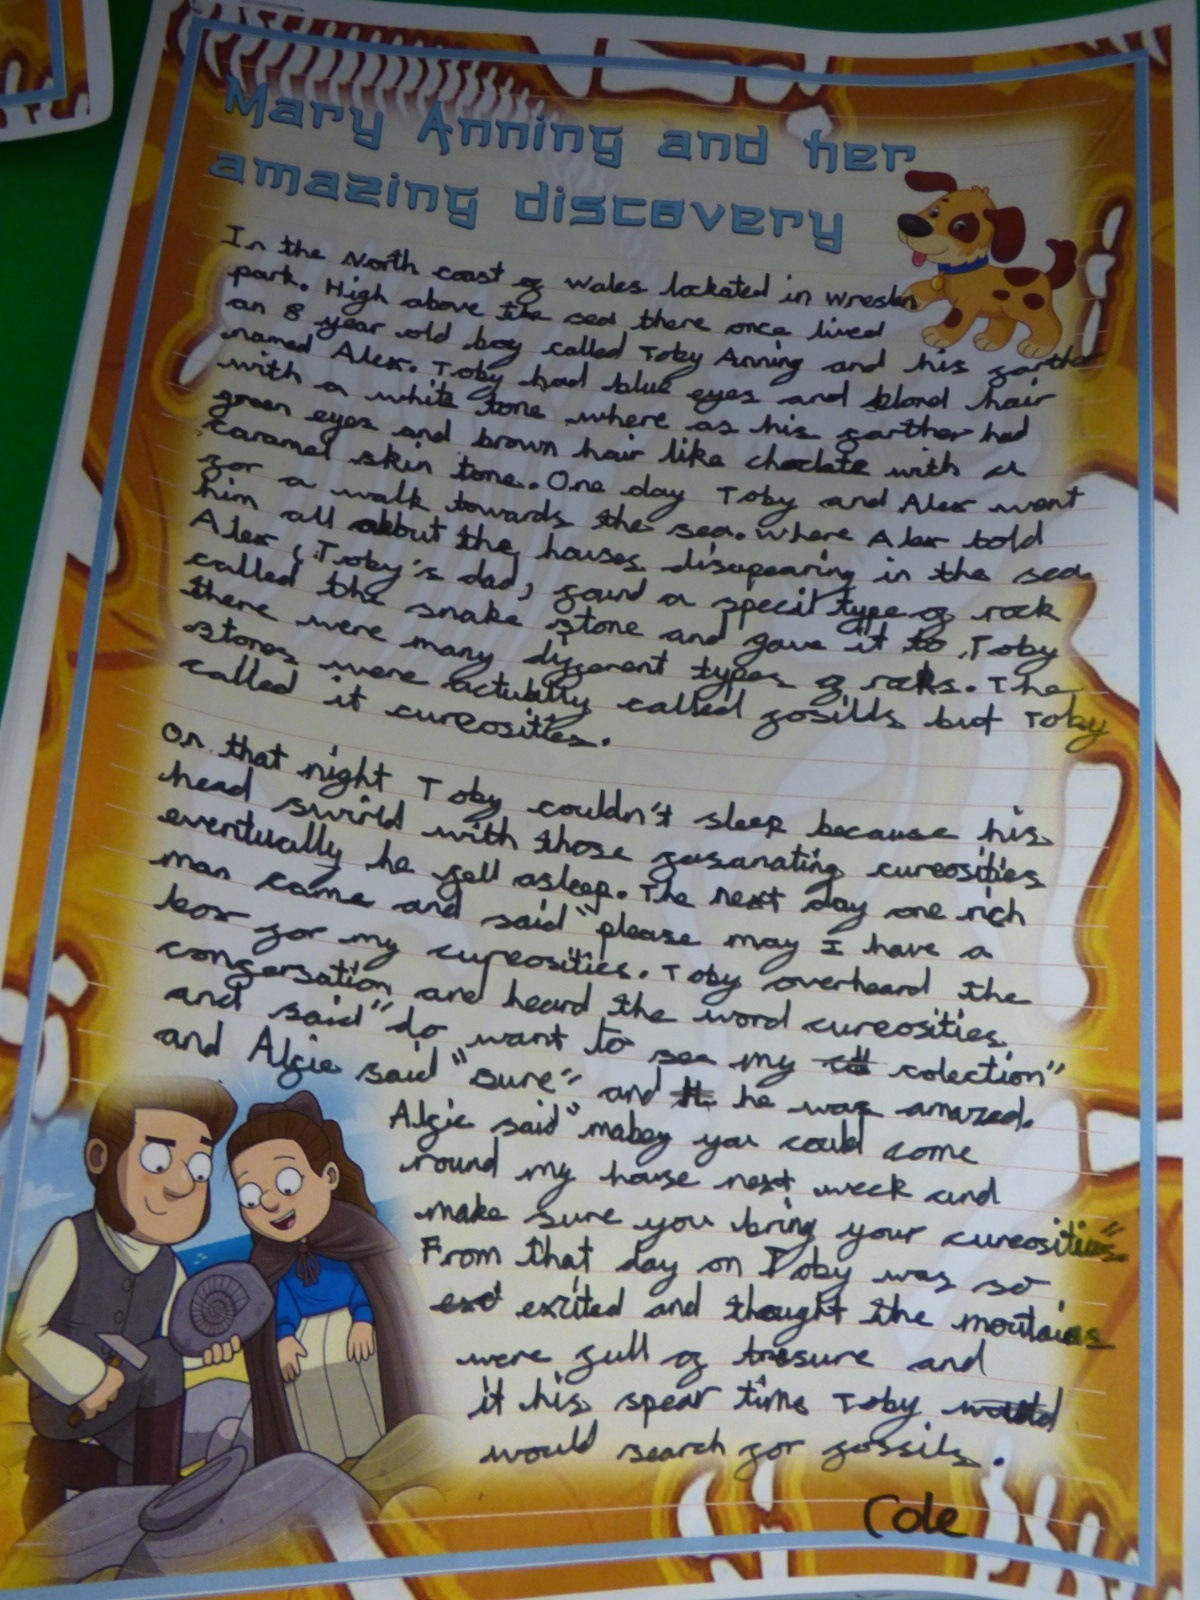 Mary Anning and her
amazing discovery
In the North coast of Wales lockated in wreslen
park. High above the sea there once lived
an 8 year old boy called Toby Anning and his farther
named Alex. Toby had blue eyes and blond hair
with a white tone where as his farther had
green eyes and brown hair like choclate with a
caramel skin tone. One day Toby and Alex went
for a walk towards the sea. Where Alex told
him all about the houses disapearing in the sea
Alex (Toby's dad) found a specil type of rock
called the snake stone and gave it to Toby
there were many different types of rocks. The
stones were actually called fosills but Toby
called it cureosities.
On that night Toby couldn't sleep because his
head swirld with those fasanating cureosities
eventually he fell asleep. The next day one rich
man came and said "please may I have a
box for my cureosities. Toby overheard the
confersation and heard the word cureosities
and said "do want to see my colection"
and Alfie said "sure" and he was amazed.
Alfie said "mabey you could come
round my house next week and
make sure you bring your cureosities"
From that day on Toby was so
excited and thought the moutains
were full of tresure and
it his spear time Toby
would search for fossils.
Cole